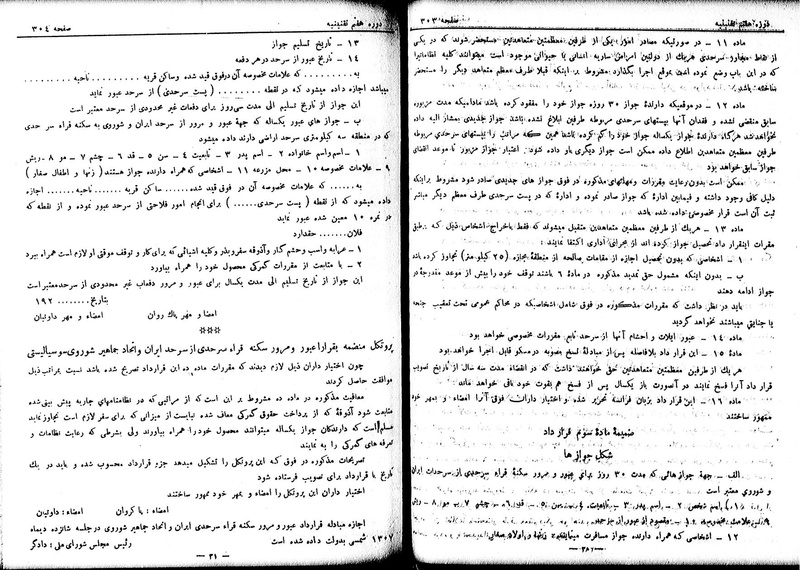 دوره هفتم تقنینیه
صفحه ۳۰۳
ماده ۱۱ – در صورتیکه مصادر امور یکی از طرفین معظمتین متعاهدتین مستحضر شوند که در یکی
از نقاط مجاور سرحدی هر یک از دولتین امراض ساریه انسانی یا حیوانی موجود است میتوانند کلیه نظاماتیرا
که در این باب وضع نموده اند بموقع اجرا بگذارند مشروط بر اینکه قبلا طرف معظم متعاهد دیگر را مستحضر
ساخته باشند.
ماده ۱۲ – در موقعیکه دارندهٔ جواز ۳۰ روزه جواز خود را مفقود کرده باشد مادامیکه مدت مزبوره
سابق منقضی نشده و فقدان آنها بپستهای سرحدی مربوطه طرفین ابلاغ نشده باشد جواز جدیدی بمشار الیه داده
نخواهد شد هرگاه دارندهٔ جواز یکساله جواز خود را گم کرده باشد همین که مراتب را بپستهای سرحدی مربوطه
طرفین معظمتین متعاهدتین اطلاع داده ممکن است جواز دیگری باو داده شود. اعتبار جواز مزبور تا موعد انقضای
جواز سابق خواهد بود
ممکن است بدون رعایت مقررات و مهلتهای مذکوره در فوق جواز های جدیدی صادر شود مشروط براینکه
دلیل کافی وجود داشته و فیمابین ادارهٔ که جواز صادر نموده و ادارهٔ که در پست سرحدی طرف معظم دیگر مباشر
ثبت آن است قرار مخصوصی داده شده باشد
ماده ۱۳ – هر یک از طرفین معظمتین متعاهدتین متقبل میشوند که فقط باخراج اشخاص ذیل که بر طبق
مقررات اینقرار داد تحصیل جواز کرده اند از مجرای اداری اکتفا نمایند:
۱ – اشخاصی که بدون تحصیل اجازه از مقامات صالحه از منطقهٔ مجازه (۲۵ کیلومتر) تجاوز کرده باشند
ب – بدون اینکه مشمول حق تمدید مذکوره در مادهٔ ۶ باشند توقف خود را بیش از موعد مقرره در
جواز ادامه دهند
باید در نظر داشت که مقررات مذکوره در فوق شامل اشخاصیکه در محاکم عمومی تحت تعقیب جنحه
یا جنایتی میباشند نخواهد گردید
ماده ۱۴ – عبور ایلات و احشام آنها از سرحد تابع مقررات مخصوصی خواهد بود
مادهٔ ۱۵ – این قرار داد بلافاصله پس از مبادلهٔ نسخ مصوبه در مسکو قابل اجرا خواهد بود
هر یک از طرفین معظمتین متعاهدتین حق خواهند داشت که در انقضاء مدت سه سال از تاریخ تصویب
قرار داد آنرا فسخ نمایند در آنصورت باز یکسال پس از فسخ هم بقوت خود باقی خواهد ماند
ماده ۱۶ – این قرار داد بزبان فرانسه تحریر شده و اختیار داران فوق آنرا امضاء و بمهر خود
ممهور ساختند
ضمیمهٔ مادهٔ سوم قرار داد
شکل جواز ها
الف – جهة جواز هائی که مدت ۳۰ روز برای عبور و مرور سکنهٔ قراء سرحدی از سرحدات ایران
و شوروی معتبر است
۱۲ – اشخاصی که همراه دارنده جواز مسافرت مینمایند
– ۳۸ –
دوره هفتم تقنینیه
صفحه ۳۰۴
۱۳ – تاریخ تسلیم جواز
۱۴ – تاریخ عبور از سرحد در هر دفعه
به .......... که علامات مخصوصه آن در فوق قید شده و ساکن قریه .......... ناحیه ..........
میباشد اجازه داده میشود که در نقطه .......... (پست سرحدی) از سرحد عبور نماید
این جواز از تاریخ تسلیم الی مدت سی روز برای دفعات غیر محدودی از سرحد معتبر است
ب – جواز های یکساله که جهة عبور و مرور از سرحد ایران و شوروی به سکنه قراء سر حدی
که در منطقه سه کیلومتری سرحد اراضی دارند داده میشود
۱ – اسم و اسم خانواده ۲ – اسم پدر ۳ – تابعیت ۴ – سن ۵ – قد ۶ – چشم ۷ – مو ۸ – ریش
۹ – علامات مخصوصه ۱۰ – محل مزرعه ۱۱ – اشخاصی که همراه دارنده جواز هستند (زنها و اطفال صغار)
به ...... که علامات مخصوصه آن در فوق قید شده...... ساکن قریه ......ناحیه ...... اجازه
داده میشود که از نقطه (پست سرحدی......) برای انجام امور فلاحتی از سرحد عبور نموده و از نقطه که
در نمره ۱۰ معین شده عبور نماید
فلان........ حقدارد
۱ – عرابه و اسب و حشم کار و آذوقه سفر و بذر و کلیه اشیائی که برای کار و توقف موقتی او لازم است همراه ببرد
۲ – با متابعت از مقررات گمرکی محصول خود را همراه بیاورد
این جواز از تاریخ تسلیم الی مدت یکسال برای عبور و مرور دفعات غیر محدودی از سرحد معتبر است
بتاریخ........ ۱۹۲
امضاء و مهر پاک روان امضاء و مهر داوتیان
***
پروتکل منضمه بقرارداد عبور و مرور سکنه قراء سرحدی از سرحد ایران و اتحاد جماهیر شوروی سوسیالیستی
چون اختیار داران ذیل لازم دیدند که مقررات ماده ده این قرارداد تصریح شده باشد نسبت بمراتب ذیل
موافقت حاصل کردند
معافیت مذکوره در ماده ده مشروط بر این است که از مراتبی که در نظامنامهای جاریه پیش بینی شده
متابعت شود آذوقهٔ که از پرداخت حقوق گمرکی معاف شده نبایست از میزانی که برای سفر لازم است تجاوز نماید
مسلم است که دارندگان جواز یکساله میتوانند محصول خود را همراه بیاورند ولی بشرطی که رعایت نظامات و
تعرفه های گمرکی را به نمایند
تصریحات مذکوره در فوق که این پروتکل را تشکیل میدهد جزو قرارداد محسوب شده و باید در یک
تاریخ با قرارداد برای تصویب فرستاده شود
اختیار داران این پروتکل را امضاء و بمهر خود ممهور ساختند
امضاء: پا کروان امضاء: داوتیان
اجازه مبادله قرارداد عبور و مرور سکنه قراء سرحدی ایران و اتحاد جماهیر شوروی در جلسه شانزده دیماه
۱۳۰۷ شمسی بدولت داده شده است رئیس مجلس شورای ملی: دادگر
– ۳۹ –